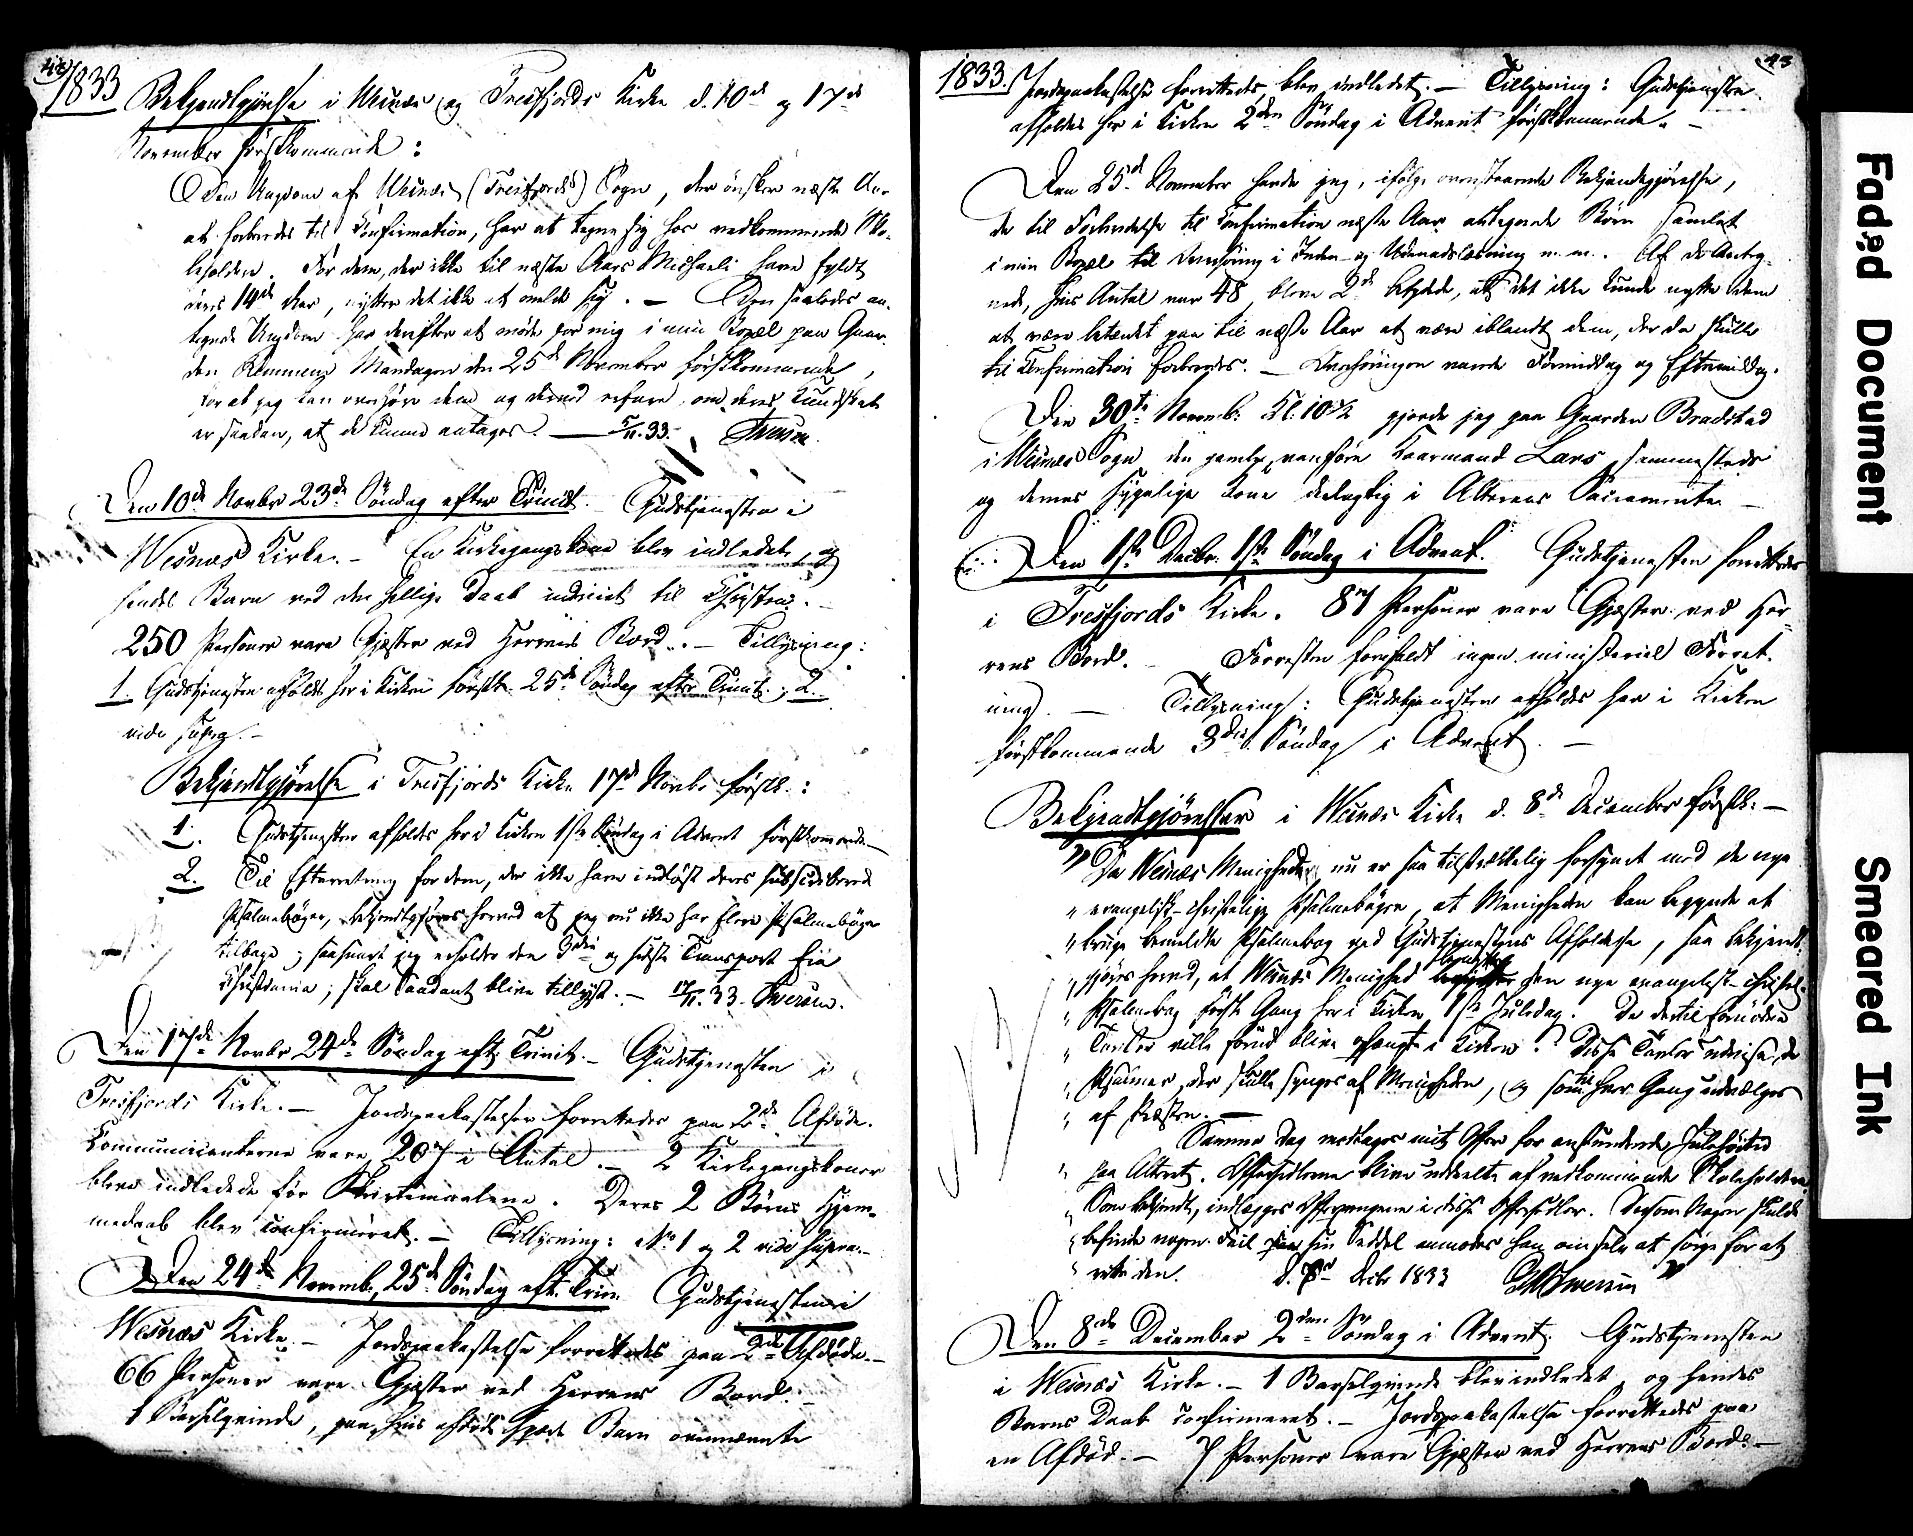 42
1833 Bekjendtgjörelse i Wesnæs og Tresfjords Kirke d. 10de og 17de
November förstkommende :
Den Ungdom af Wesnæs (Tresfjords) Sogn, der önsker næste Aar
at forberedes til Confirmation, har at tegne sig hos vedkommende Sko-
leholdere. For dem, der ikke til næste Aars Michaeli have fyldt
deres 14de Aar, nytter det ikke at melde sig. — Den saaledes an-
tegnede Ungdom har derefter at möde for mig i min Bopæl paa Gaar-
den Remmem Mandagen den 25de November förstkommende,
for at jeg kan overhöre dem og derved erfare, om deres Kundskab
er saadan, at de kunne antages. — 5/11. 33.
Den 10de Novbr 23de Söndag efter Trinit. Gudstjenesten i
Wesnæs Kirke. — En Kirkegangskone blev indledet, og
hendes Barn ved den hellige Daab indviet til Christen. —
250 Personer vare Gjæster ved Herrens Bord. — Tillysning:
1. Gudstjenesten afholdes her i Kirken förstk. 25de Söndag efter Trinit.; 2.
vide supra. —
Bekjendtgjörelse i Tresfjords Kirke 17de Novbr förstk. :
1. Gudstjenesten afholdes her i Kirken 1ste Söndag i Advent förstkommende. —
2. Til Efterretning for dem, der ikke have indlöst deres subscriberede
Psalmeböger, bekjendtgjöres herved at jeg nu ikke har flere Psalmeböger
tilbage; saasnart jeg erholder den 3die og sidste Transport fra
Christiania, skal Saadant blive tillyst. — 17/11. 33.
Den 17de Novbr 24de Söndag eft. Trinit. — Gudstjenesten i
Tresfjords Kirke. — Jordspaakastelser forrettedes paa 2de Afdöde.
Communicanterne vare 207 i Antal. — 2 Kirkegangskoner
bleve indledede för Skriftemaalene. Deres 2 Börns Hjem-
medaab blev confirmeret. — Tillysning: No 1 og 2 vide supra. —
Den 24de Novemb. 25de Söndag eft. Trin. Gudstjenesten i
Wesnæs Kirke. — Jordspaakastelse forrettedes paa 2de Afdöde. —
66 Personer vare Gjæster ved Herrens Bord. —
1 Barselqvinde, paa hvis afdöde spæde Barn ovennævnte
43
1833. Jordspaakastelse forrettedes, blev indledet. — Tillysning: Gudstjenesten
afholdes her i Kirken 2den Söndag i Advent förstkommende. —
Den 25de November havde jeg, ifölge ovenstaaende Bekjendtgjörelse,
de til Forberedelse til Confirmation næste Aar antegnede Börn samlet
i min Bopæl til Overhöring i Inden- og Udenadslæsning m. m. Af de Anteg-
nede, hvis Antal var 48, bleve 2de betydede, at det ikke kunde nytte dem
at være betænkt paa til næste Aar at være iblandt dem, der da skulle
til Confirmation forberedes. — Overhöringen varede Formiddag og Eftermiddag.
Den 30te Novemb. Kl. 10½ gjorde jeg paa Gaarden Bradstad
i Wesnæs Sogn den gamle, vanföre Kaarmand Lars sammesteds
og dennes sygelige Kone deelagtig i Alterens Sacramente. —
Den 1ste Decbr. 1ste Söndag i Advent. Gudstjenesten forrettedes
i Tresfjords Kirke. 87 Personer vare Gjæster ved Her-
rens Bord. — Forresten foreholdt ingen ministeriel Forret-
ning. — Tillysning: Gudstjenesten afholdes her i Kirken
förstkommende 3die Söndag i Advent. —
Bekjendtgjörelser i Wesnæs Kirke d. 8de December förstk. —
" Da Wesnæs Menighed nu er saa tilstrækkelig forsynet med de nye
" evangelisk-christelige Psalmeböger, at Menigheden kan begynde at
" bruge bemeldte Psalmebog ved Gudstjenestens Afholdelse, saa bekjendt-
" gjöres herved, at Wesnæs Menighed benytter den nye evangelisk-christel.
" Psalmebog förste Gang her i Kirken 1ste Juledag. De dertil fornödne
" Tavler ville forud blive ophængte i Kirken. Disse Tavler udvise, de
" Psalmer, der skulle synges af Menigheden, og som til hver Gang udvælges
" af Præsten. —
Samme Dag modtages mit Offer for anstundende Julehöitid
" paa Alteret. Offersedlerne blive uddeelte af vedkommende Skoleholdere.
" Som bekjendt, indlægges Offerpengene i disse Offersedler. Dersom Nogen skulde
" befinde nogen Feil paa sin Seddel anmodes han om selv at sörge for at
" rette den. d. 7de Decbr 1833
Den 8de December 2den Söndag i Advent. Gudstjenesten
i Wesnæs Kirke. — 1 Barselqvinde blev indledet, og hendes
Barns Daab confirmeret. — Jordspaakastelse forrettedes paa
en Afdöd. — 7 Personer vare Gjæster ved Herrens Bord. —
Faded Document
Smeared Ink